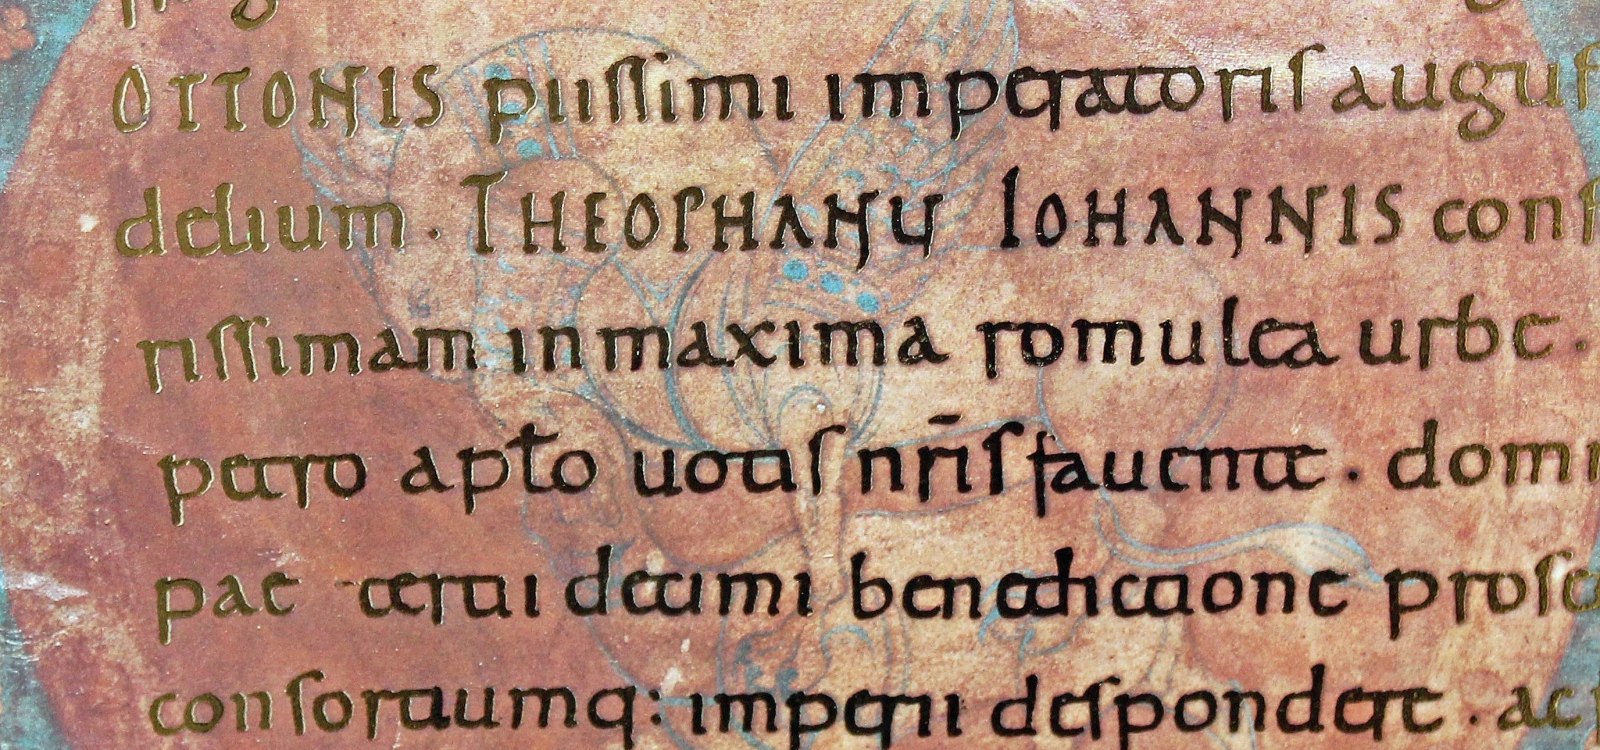 OTTONIS piissimi imperatoris auguſ
delium · THEOPHANU IOHANNIS conſ
riſſimam in maxima romulea urbe ·
petro apłō uotiſ nr̄iſ fauente · domi
pae tertii decimi benedictione proſe
conſortiumq: imperii deſpondere · ac